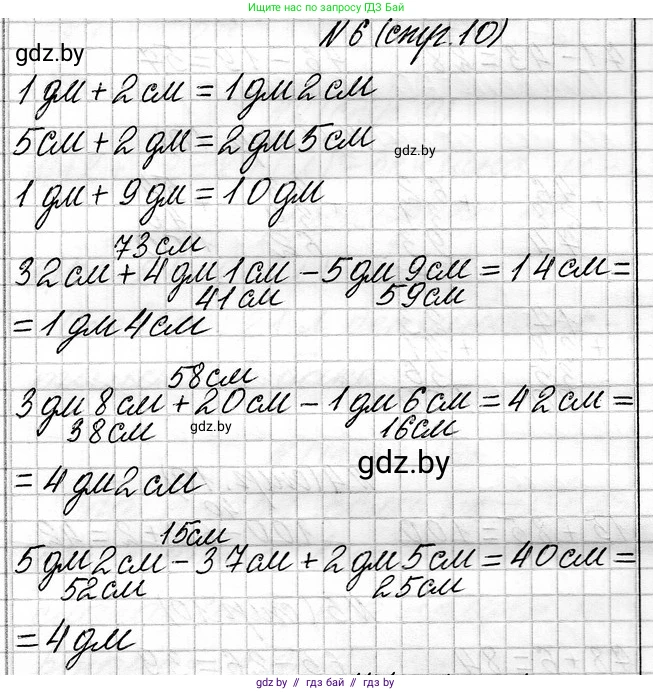 Ищи нас в поиске по запросу ГДЗ Бай
№6 (стр.10)
gdz.by
1 дм + 2 см = 1 дм 2 см
5 см + 2 дм = 2 дм 5 см
gdz.by
1 дм + 9 дм = 10 дм
73 см
32 см + 4 дм 1 см - 5 дм 9 см = 14 см =
41 см 59 см
= 1 дм 4 см
58 см
3 дм 8 см + 20 см - 1 дм 6 см = 42 см =
38 см gdz.by 16 см
gdz.by
= 4 дм 2 см
15 см
5 дм 2 см - 37 см + 2 дм 5 см = 40 см =
52 см 25 см
= 4 дм
gdz.by // gdz.by // gdz.by